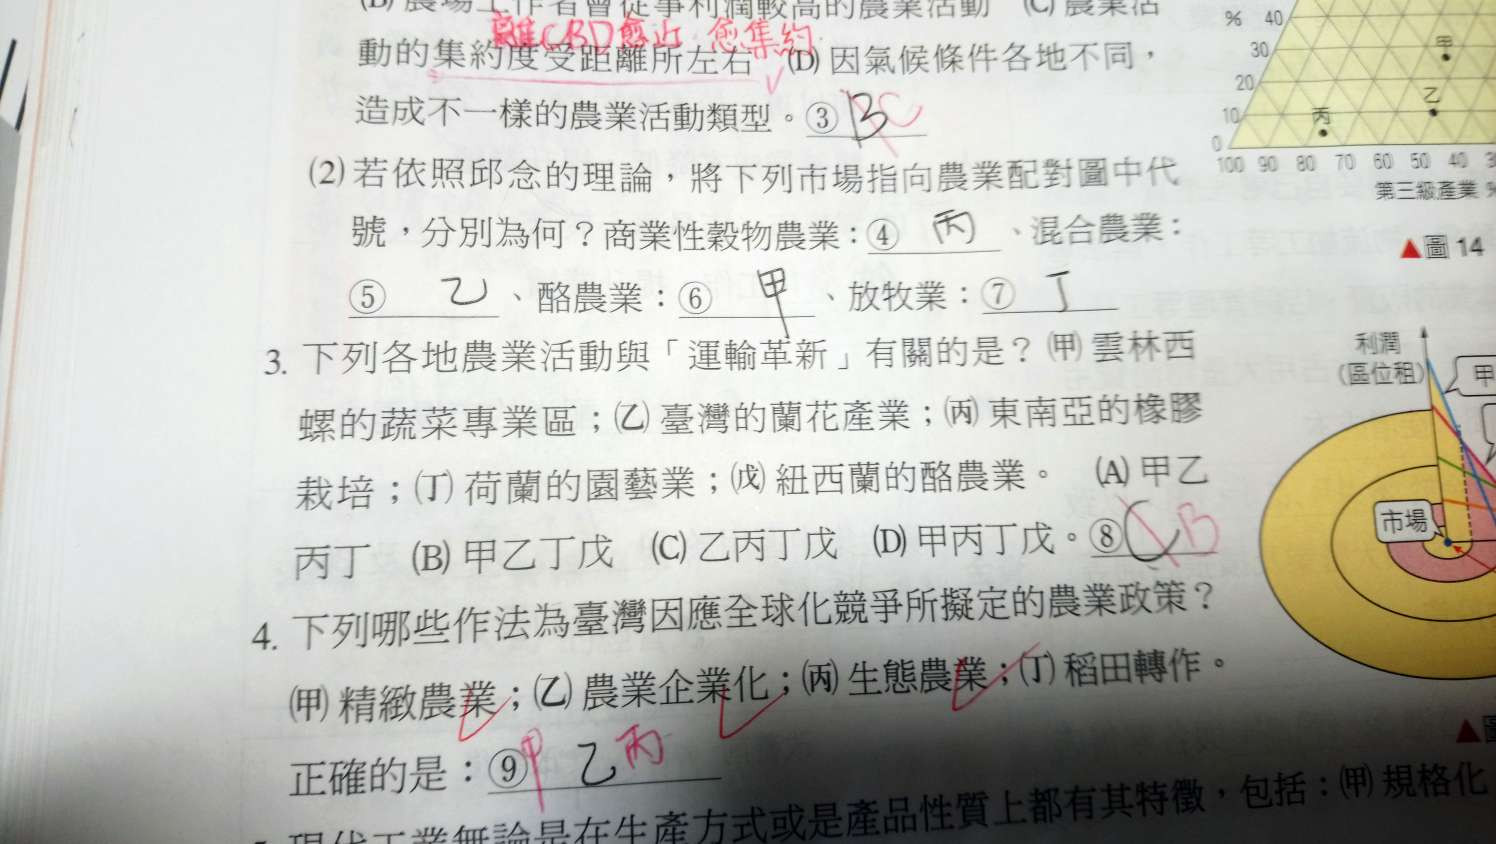 (B) 農場工作者會從事利潤較高的農業活動 (C) 農業活
離CBD愈近 愈集約
動的集約度受距離所左右 (D) 因氣候條件各地不同，
造成不一樣的農業活動類型。③ B C
(2) 若依照邱念的理論，將下列市場指向農業配對圖中代
號，分別為何？商業性穀物農業：④ 丙 、混合農業：
⑤ 乙 、酪農業：⑥ 甲 、放牧業：⑦ 丁
3. 下列各地農業活動與「運輸革新」有關的是？(甲) 雲林西
螺的蔬菜專業區；(乙) 臺灣的蘭花產業；(丙) 東南亞的橡膠
栽培；(丁) 荷蘭的園藝業；(戊) 紐西蘭的酪農業。 (A) 甲乙
丙丁 (B) 甲乙丁戊 (C) 乙丙丁戊 (D) 甲丙丁戊。⑧ C B
4. 下列哪些作法為臺灣因應全球化競爭所擬定的農業政策？
(甲) 精緻農業；(乙) 農業企業化；(丙) 生態農業；(丁) 稻田轉作。
正確的是：⑨ 甲 乙 丙
5. 現代工業無論是在生產方式或是產品性質上都有其特徵，包括：(甲) 規格化
% 40
30
甲
20
乙
10
丙
0
100 90 80 70 60 50 40 3
第三級產業 %
▲圖 14
利潤
(區位租)
甲
市場
▲圖